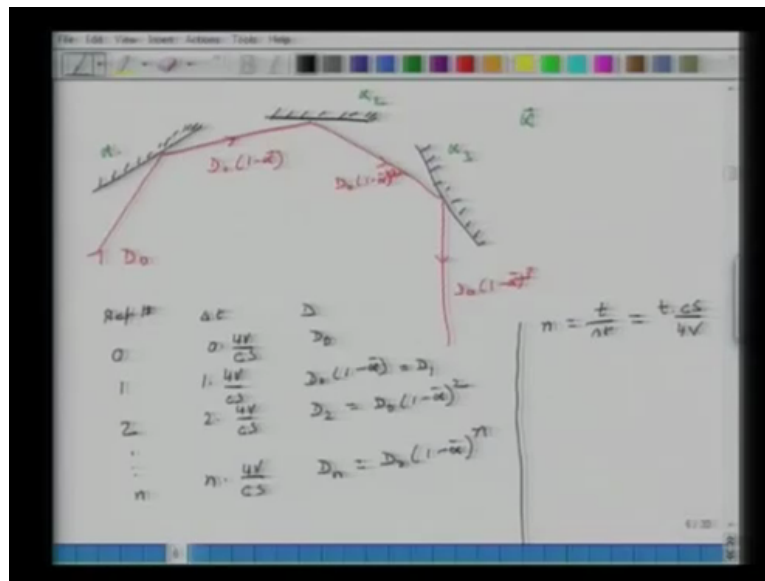 File Edit View Insert Actions Tools Help
α₂
ᾱ
α₁
α₃
D₀(1-ᾱ)
D₀(1-ᾱ)²
D₀
D₀(1-ᾱ)³
Ref # Δt D
0 0·4V/cS D₀
1 1·4V/cS D₀(1-ᾱ) = D₁
2 2·4V/cS D₂ = D₀(1-ᾱ)²
⋮
n n·4V/cS Dₙ = D₀(1-ᾱ)ⁿ
n = t/Δt = t·cS/4V